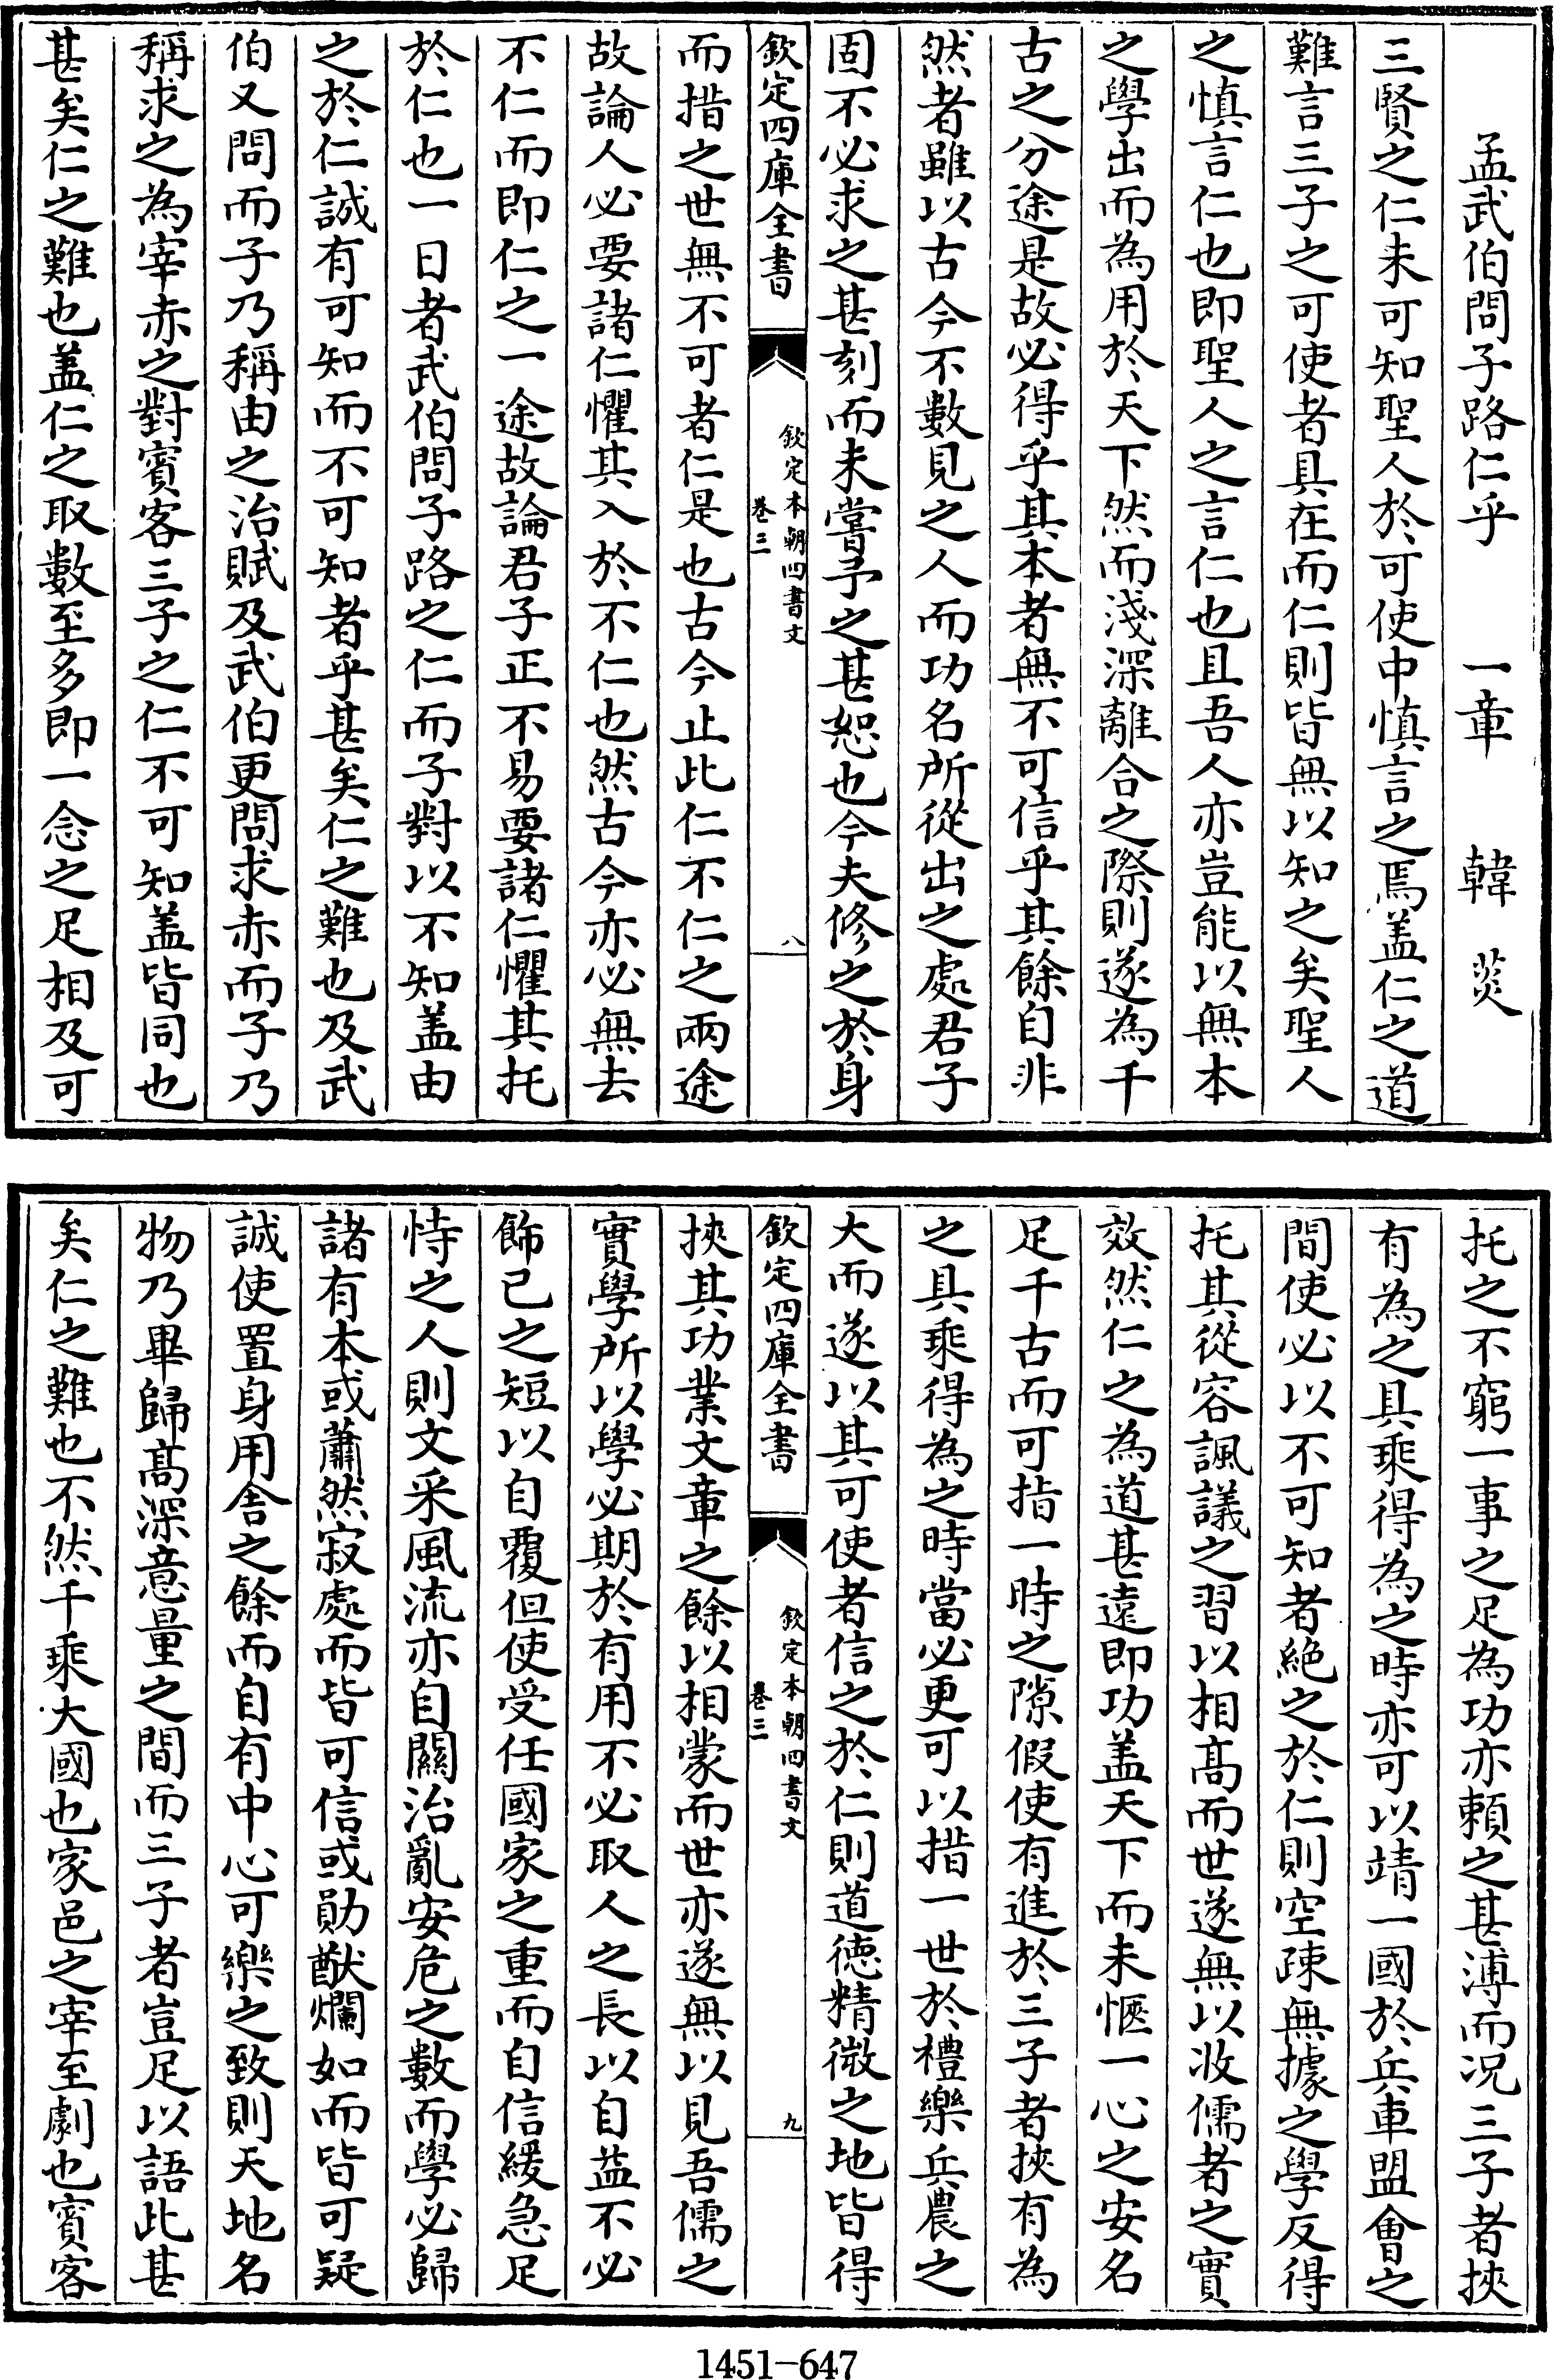 孟武伯問子路仁乎　一章　韓菼
三賢之仁未可知聖人於可使中慎言之焉盖仁之道
難言三子之可使者具在而仁則皆無以知之矣聖人
之慎言仁也即聖人之言仁也且吾人亦豈能以無本
之學出而為用於天下然而淺深離合之際則遂為千
古之分途是故必得乎其本者無不可信乎其餘自非
然者雖以古今不數見之人而功名所從出之處君子
固不必求之甚刻而未嘗予之甚恕也今夫修之於身
欽定四庫全書
欽定本朝四書文
卷三
八
而措之世無不可者仁是也古今止此仁不仁之兩途
故論人必要諸仁懼其入於不仁也然古今亦必無去
不仁而即仁之一途故論君子正不易要諸仁懼其托
於仁也一日者武伯問子路之仁而子對以不知盖由
之於仁誠有可知而不可知者乎甚矣仁之難也及武
伯又問而子乃稱由之治賦及武伯更問求赤而子乃
稱求之為宰赤之對賓客三子之仁不可知盖皆同也
甚矣仁之難也盖仁之取數至多即一念之足相及可
托之不窮一事之足為功亦賴之甚溥而况三子者挾
有為之具乘得為之時亦可以靖一國於兵車盟會之
間使必以不可知者絶之於仁則空疎無據之學反得
托其從容諷議之習以相髙而世遂無以收儒者之實
效然仁之為道甚遠即功盖天下而未愜一心之安名
足千古而可指一時之隙假使有進於三子者挾有為
之具乘得為之時當必更可以措一世於禮樂兵農之
大而遂以其可使者信之於仁則道徳精微之地皆得
欽定四庫全書
欽定本朝四書文
卷三
九
挾其功業文章之餘以相蒙而世亦遂無以見吾儒之
實學所以學必期於有用不必取人之長以自益不必
飾已之短以自覆但使受任國家之重而自信緩急足
恃之人則文采風流亦自關治亂安危之數而學必歸
諸有本或蕭然寂處而皆可信或勛猷爛如而皆可疑
誠使置身用舍之餘而自有中心可樂之致則天地名
物乃畢歸髙深意量之間而三子者豈足以語此甚
矣仁之難也不然千乘大國也家邑之宰至劇也賓客
1451-647